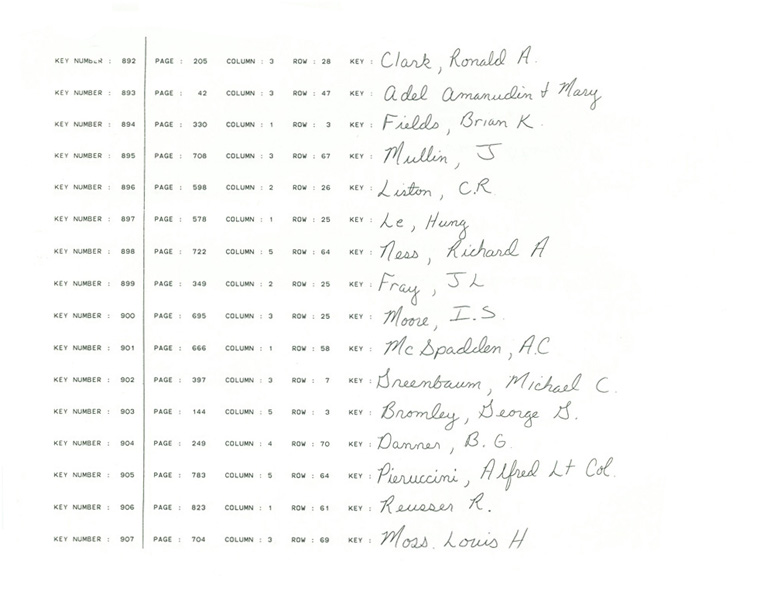 KEY NUMBER : 892 PAGE : 205 COLUMN : 3 ROW : 28 KEY : Clark, Ronald A.
KEY NUMBER : 893 PAGE : 42 COLUMN : 3 ROW : 47 KEY : Adel Amanudin & Mary
KEY NUMBER : 894 PAGE : 330 COLUMN : 1 ROW : 3 KEY : Fields, Brian K.
KEY NUMBER : 895 PAGE : 708 COLUMN : 3 ROW : 67 KEY : Mullin, J
KEY NUMBER : 896 PAGE : 598 COLUMN : 2 ROW : 26 KEY : Liston, C.R.
KEY NUMBER : 897 PAGE : 578 COLUMN : 1 ROW : 25 KEY : Le, Hung
KEY NUMBER : 898 PAGE : 722 COLUMN : 5 ROW : 64 KEY : Ness, Richard A
KEY NUMBER : 899 PAGE : 349 COLUMN : 2 ROW : 25 KEY : Fray, J L
KEY NUMBER : 900 PAGE : 695 COLUMN : 3 ROW : 25 KEY : Moore, I.S.
KEY NUMBER : 901 PAGE : 666 COLUMN : 1 ROW : 58 KEY : McSpadden, A.C
KEY NUMBER : 902 PAGE : 397 COLUMN : 3 ROW : 7 KEY : Greenbaum, Michael C.
KEY NUMBER : 903 PAGE : 144 COLUMN : 5 ROW : 3 KEY : Bromley, George G.
KEY NUMBER : 904 PAGE : 249 COLUMN : 4 ROW : 70 KEY : Danner, B.G.
KEY NUMBER : 905 PAGE : 783 COLUMN : 5 ROW : 64 KEY : Pieruccini, Alfred Lt Col.
KEY NUMBER : 906 PAGE : 823 COLUMN : 1 ROW : 61 KEY : Reusser R.
KEY NUMBER : 907 PAGE : 704 COLUMN : 3 ROW : 69 KEY : Moss. Louis H